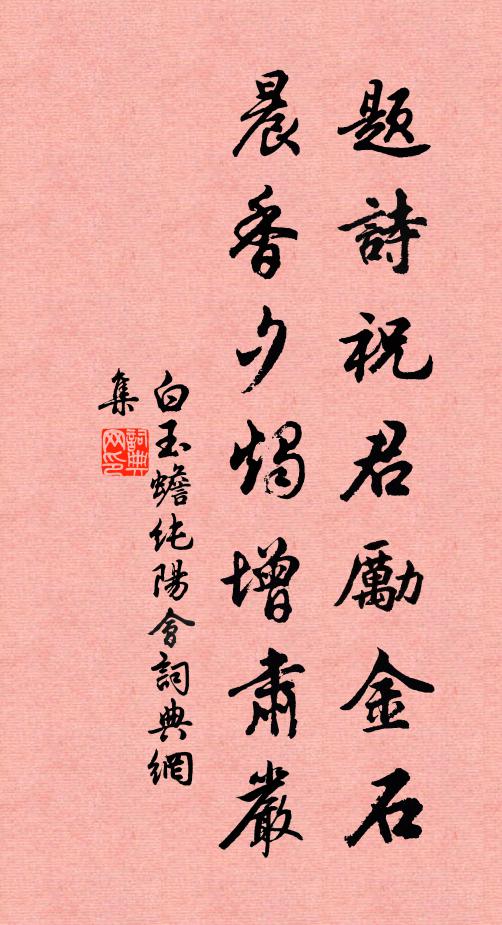 題詩祝君勵金石
晨香夕燭增肅嚴
白玉蟾純陽會詞典網
集
詞典
网印